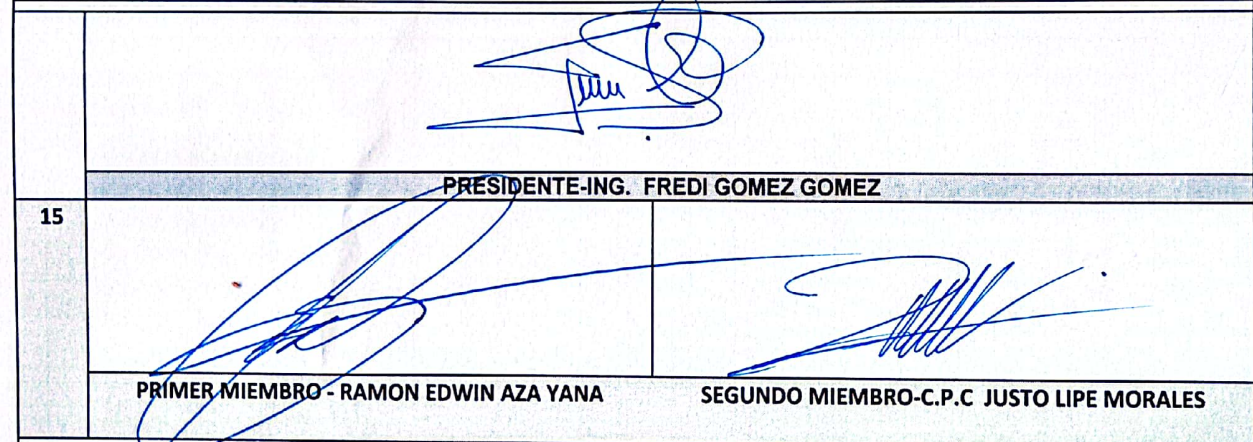 PRESIDENTE-ING. FREDI GOMEZ GOMEZ
15
PRIMER MIEMBRO - RAMON EDWIN AZA YANA
SEGUNDO MIEMBRO-C.P.C JUSTO LIPE MORALES